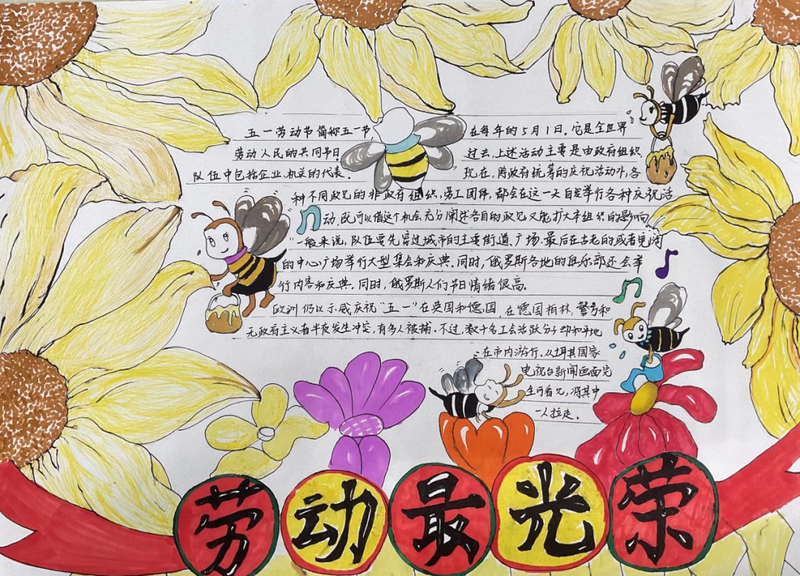 五一劳动节简称五一节, 在每年的5月1日。它是全世界
劳动人民的共同节日 过去,上述活动主要是由政府组织
队伍中包括企业、机关的代表。 现在,除政府统筹的庆祝活动外,各
种不同政见的非政府组织,劳工团体,都会在这一天自发举行各种庆祝活
动,既可以借这个机会充分阐述各自的政见又能扩大本组织的影响
一般来说,队伍要先穿过城市的主要街道、广场,最后在古老的或者
的中心广场举行大型集会和庆典。同时,俄罗斯各地的俱乐部还会举
行内容和庆典。同时,俄罗斯人们节日情绪很高。
欧洲仍以示威庆祝“五一”在英国和德国,在德国柏林,警方和
无政府主义者半夜发生冲突,有多人被捕,不过,数十名工会活跃分子却和平地
在市内游行。从土耳其国家
电视台新闻画面见
生可看见,将其中
一人拉走。
劳动最光荣